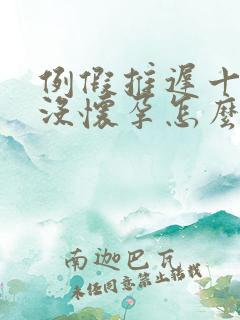 例假推遲十
沒懷孕怎麼
南迦巴瓦
未經同意禁止轉載